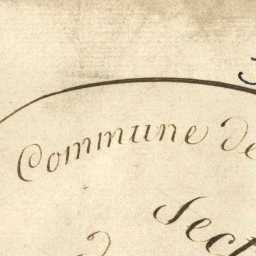 Commune de
Sect